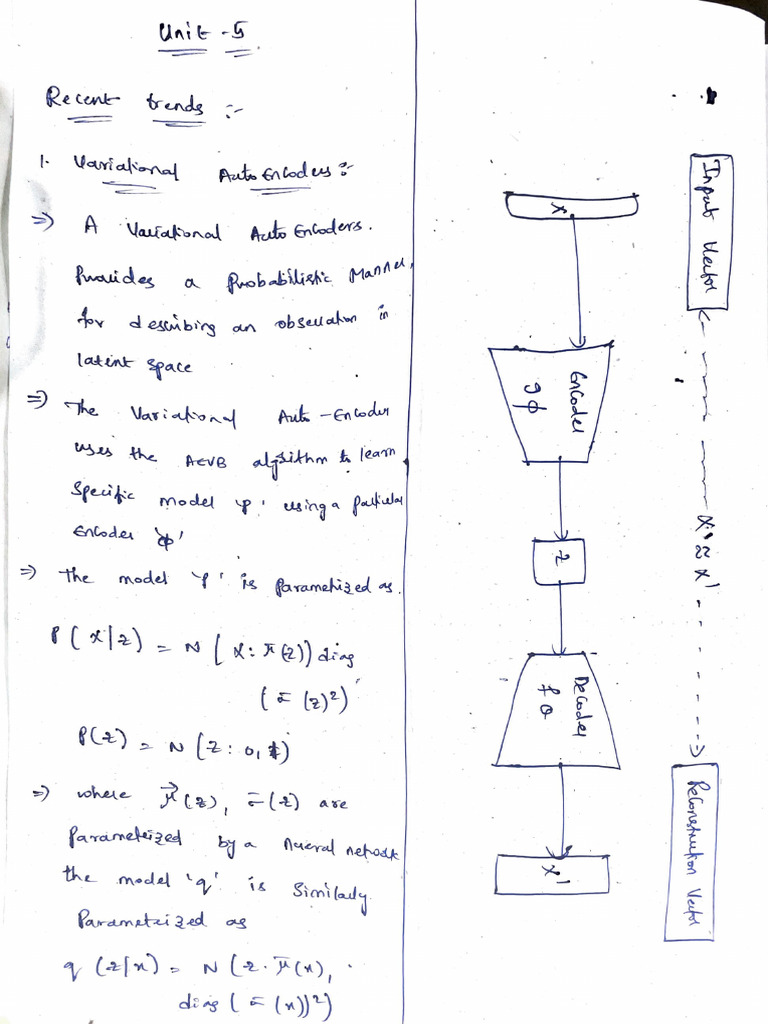 Unit - 5
Recent trends :-
1. Variational Auto Encoders :-
⇒ A Variational Auto Encoders.
Provides a Probabilistic Manner,
for describing an observation in
latent space
⇒ The Variational Auto-Encoder
uses the AEVB algorithm to learn
Specific model 'p' using a Particular
Encoder 'ϕ'
⇒ The model 'p' is Parametrized as.
P(x|z) = N(x: μ(z)) diag
(σ̄ (z)²)
P(z) = N(z: 0, 1)
⇒ where μ⃗(z), σ̄(z) are
Parameterized by a Nueral network
the model 'q' is Similarly
Parametrized as
q (z|x) = N(z. μ̄(x),
diag (σ̄ (x))²)
Input Vector
<- - - - - - x ≈ x' - - - - - - ->
Reconstruction Vector
x
Encoder
gϕ
z
Decoder
fθ
x'